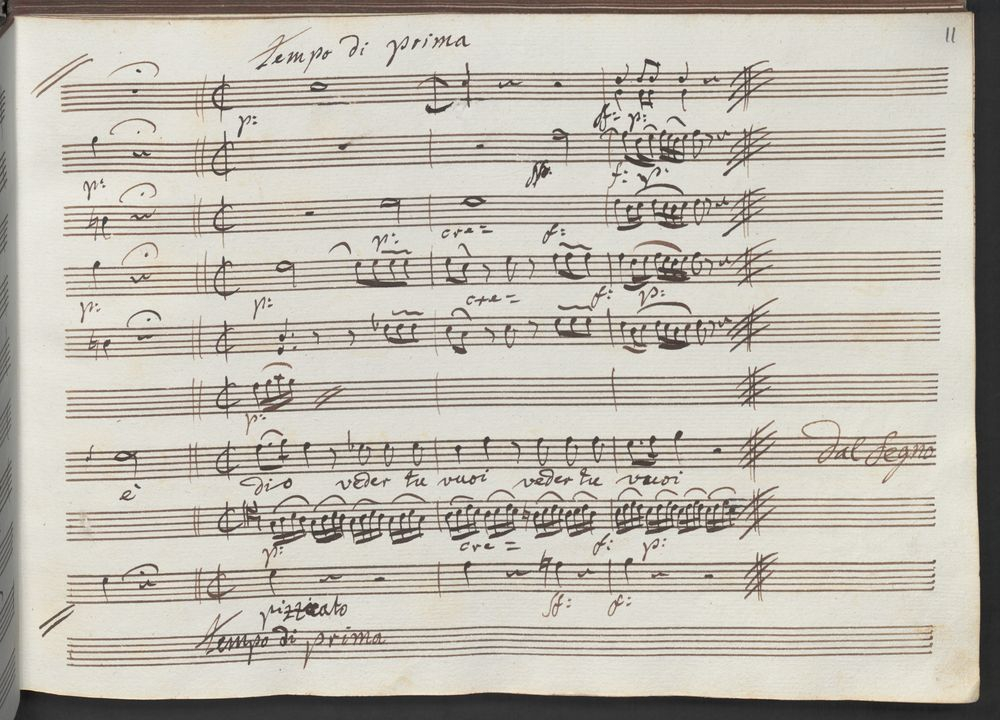 11
tempo di prima
p:
sf: p:
p:
sf.
f: p:
p: cre= f:
p: p: cre= f: p:
p:
Dal Segno
è dio veder tu vuoi veder tu vuoi
p: cre= f: p:
pizzicato sf: f:
tempo di prima